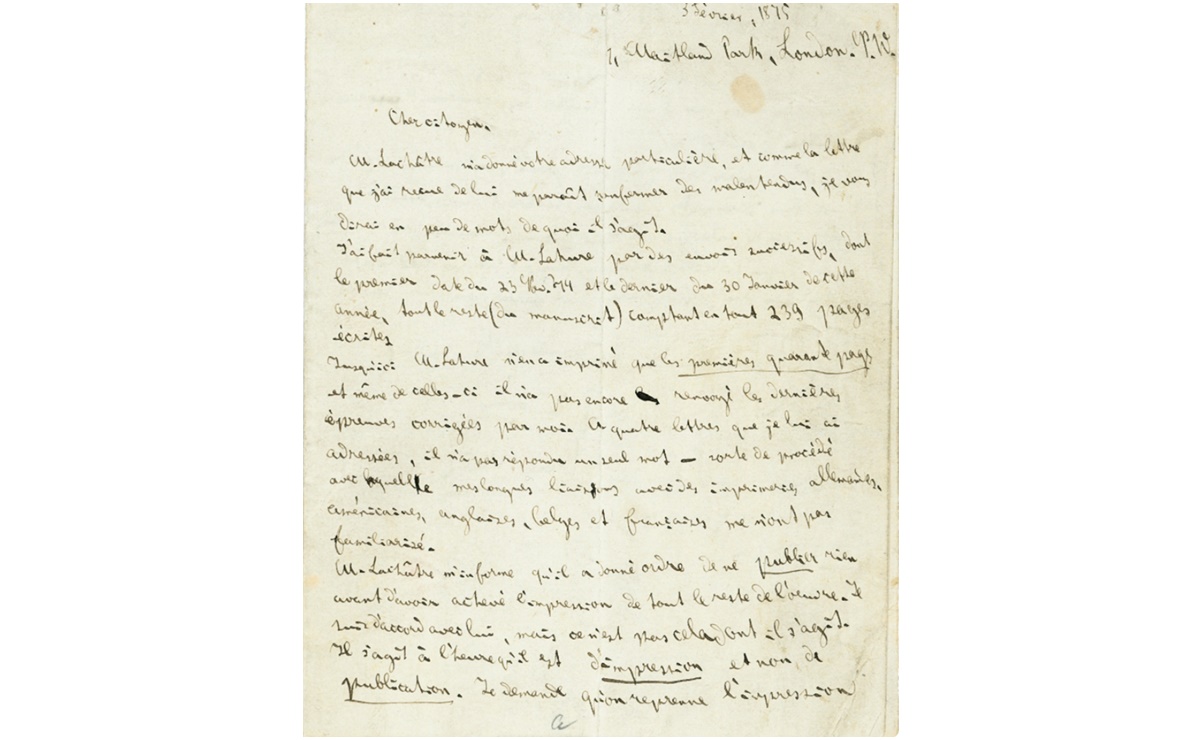 3 Février, 1875
1, Maitland Park, London. N.W.
Cher citoyen.
M. Lachâtre m'a donné votre adresse particulière, et comme la lettre
que j'ai reçue de lui me paraît renfermer des malentendus, je vous
dirai en peu de mots de quoi il s'agit.
J'ai fait parvenir à M. Lahure par des envois successifs, dont
le premier date du 23 Nov. 74 et le dernier du 30 Janvier de cette
année, tout le reste (du manuscrit) comptant en tout 239 pages
écrites
Jusqu'ici M. Lahure n'en a imprimé que les premières quarante pages
et même de celles-ci il n'a pas encore renvoyé les dernières
épreuves corrigées par moi. A quatre lettres que je lui ai
adressées, il n'a pas répondu un seul mot — sorte de procédé
avec laquelle mes longues liaisons avec des imprimeries allemandes,
américaines, anglaises, belges et françaises ne m'ont pas
familiarisé.
M. Lachâtre m'informe qu'il a donné ordre de ne publier rien
avant d'avoir achevé l'impression de tout le reste de l'oeuvre. Je
suis d'accord avec lui, mais ce n'est pas cela dont il s'agit.
Il s'agit à l'heure qu'il est d'impression et non de
publication. Je demande qu'on reprenne l'impression